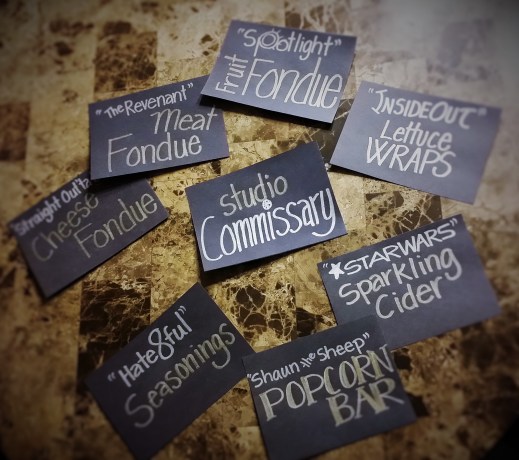 "Spotlight"
Fruit
Fondue
"The Revenant"
Meat
Fondue
"INSIDEOUT"
Lettuce
WRAPS
Straight Outta
Cheese
Fondue
studio
Commissary
"STARWARS"
Sparkling
Cider
"Hate8ful"
Seasonings
"Shaun the Sheep"
POPCORN
BAR